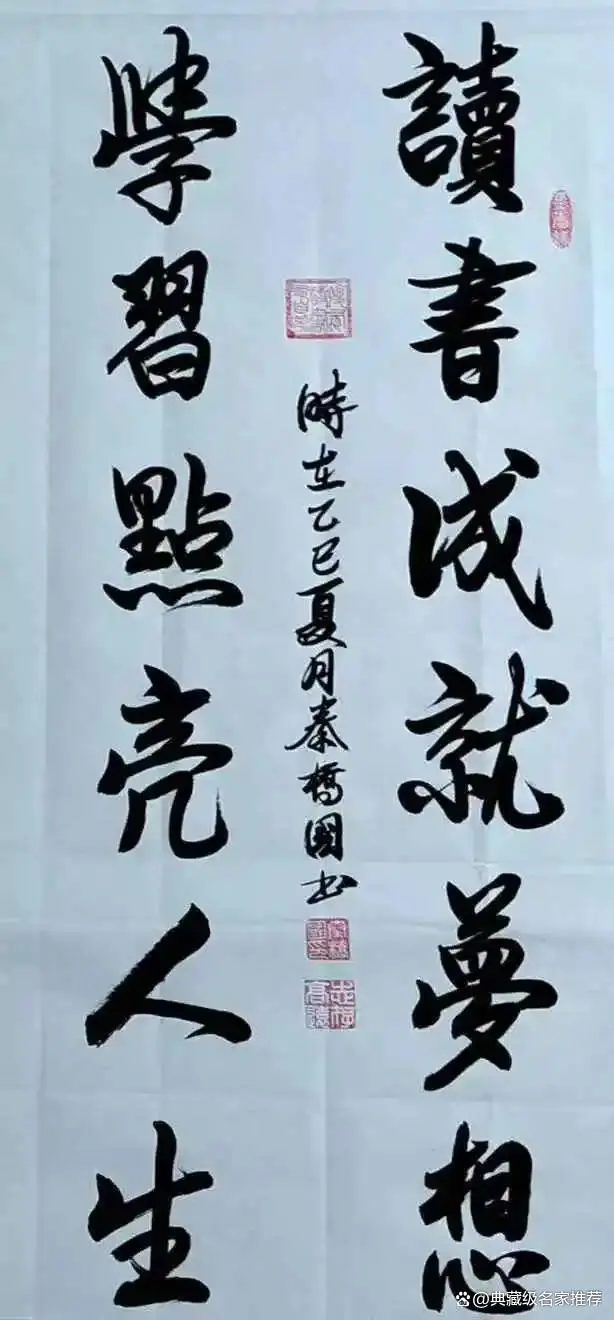 讀書成就夢想
學習點亮人生
時在乙巳夏月秦橋國书
@典藏级名家推荐